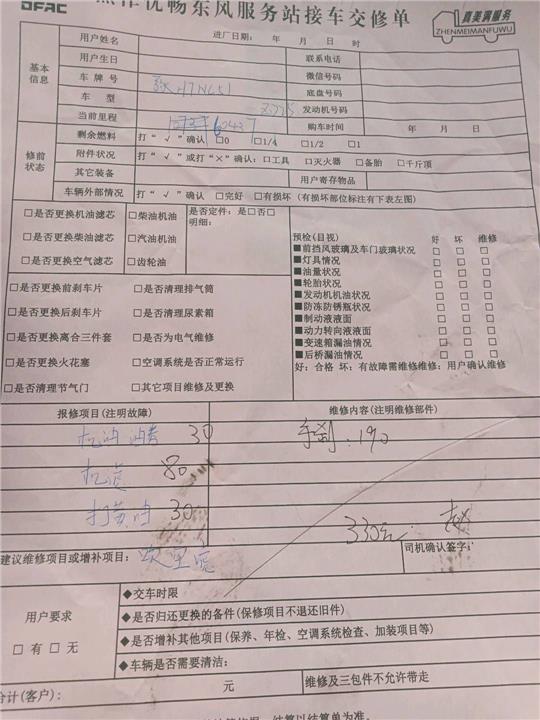 DFAC
优畅东风服务站接车交修单
真美满服务
ZHENMEIMANFUWU
进厂日期: 年 月 日 时
基本信息
用户姓名 联系电话
用户生日 微信号码
车牌号 底盘号码
车型 发动机号码
当前里程 购车时间 年 月 日
修前状态
剩余燃料 打"√"确认 □0 □1/4 □1/2 □1
附件状况 打"√"或打"×"确认: □工具 □灭火器 □备胎 □千斤顶
其它装备 用户寄存物品
车辆外部情况 打"√"确认 □完好 □有损坏 (有损坏部位标注有下表左图)
□是否更换机油滤芯 □柴油机油 是否定件: 是□否□
明细:
□是否更换柴油滤芯 □汽油机油
□是否更换空气滤芯 □齿轮油
预检(目视) 好 坏 维修
■前挡风玻璃及车门玻璃状况 □ □ □
■灯具情况 □ □ □
■油量状况 □ □ □
■轮胎状况 □ □ □
■发动机机油状况 □ □ □
■防冻防锈瓶状况 □ □ □
■制动液液面 □ □ □
■动力转向液液面 □ □ □
■变速箱漏油情况 □ □ □
■后桥漏油情况 □ □ □
好: 合格 坏: 有故障需维修维修: 用户确认维修
□是否更换前刹车片 □是否清理排气筒
□是否更换后刹车片 □是否清理尿素箱
□是否更换离合三件套 □是否为电气维修
□是否更换火花塞 □空调系统是否正常运行
□是否清理节气门 □其它项目维修及更换
报修项目(注明故障) 维修内容(注明维修部件)
机油 30 手刹: 190
80
打黄油 30
330元
建议维修项目或增补项目: 司机确认签字:
用户要求
□有 □无
◆交车时限
◆是否归还更换的备件(保修项目不退还旧件)
◆是否增补其他项目(保养、年检、空调系统检查、加装项目等)
◆车辆是否需要清洁:
合计(客户): 元 维修及三包件不允许带走
结算以结算单为准。